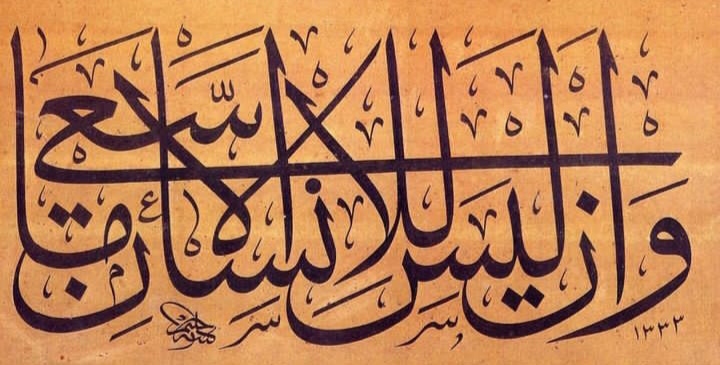 وَاَن لَيسَ لِلاِنسَانِ اِلَّا مَا سَعٰى
١٣٣٣